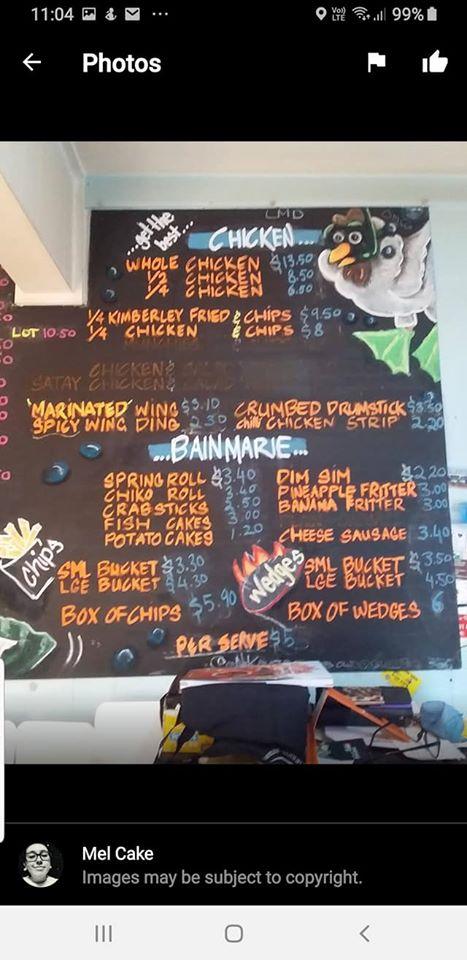 11:04
Vo)) LTE 99%
Photos
LMD
...get the best...
CHICKEN...
WHOLE CHICKEN $13.50
1/2 CHICKEN 8.50
1/4 CHICKEN
1/4 KIMBERLEY FRIED & CHIPS $9.50
1/4 CHICKEN & CHIPS $8
LOT 10.50
CHICKEN &
SATAY CHICKEN &
'MARINATED' WING
SPICY WING DING 2.30
CRUMBED DRUMSTICK $3.50
chilli CHICKEN STRIP 2.20
...BAINMARIE...
SPRING ROLL $3.40
CHIKO ROLL 3.40
CRABSTICKS
FISH CAKES 3.00
POTATO CAKES 1.20
DIM SIM $2.20
PINEAPPLE FRITTER 3.00
BANANA FRITTER 3.00
CHEESE SAUSAGE 3.40
Chips
SML BUCKET $3.30
LGE BUCKET $4.30
BOX OF CHIPS $5.90
Wedges
SML BUCKET $3.50
LGE BUCKET 4.50
BOX OF WEDGES 6
PER SERVE $5
Mel Cake
Images may be subject to copyright.